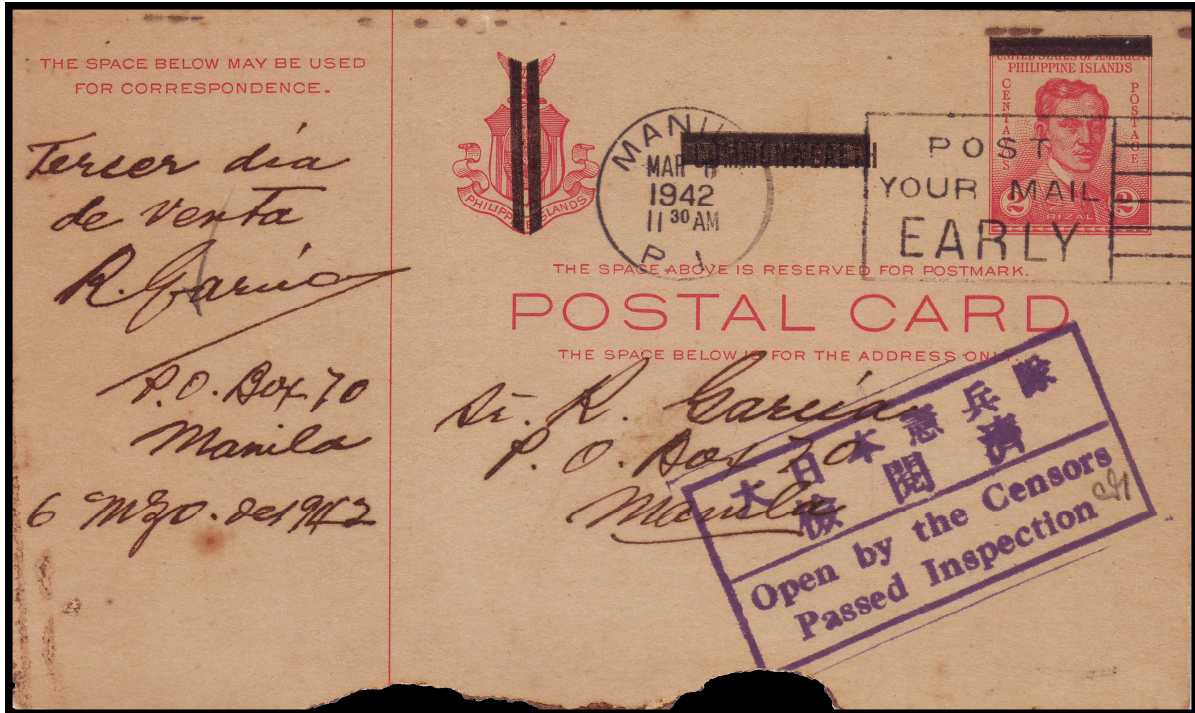 THE SPACE BELOW MAY BE USED
FOR CORRESPONDENCE.
Tercer día
de venta
R. García
P.O. Box 70
Manila
6 Mzo. de 1942
PHILIPPINE ISLANDS
MANILA
MAR 6
1942
11 30 AM
P. I.
COMMONWEALTH
POST
YOUR MAIL
EARLY
UNITED STATES OF AMERICA
PHILIPPINE ISLANDS
CENTAVOS
POSTAGE
2 2
RIZAL
THE SPACE ABOVE IS RESERVED FOR POSTMARK.
POSTAL CARD
THE SPACE BELOW IS FOR THE ADDRESS ONLY.
Sr. R. García
P. O. Box 70
Manila
大日本憲兵隊
檢閲濟
Open by the Censors
Passed Inspection